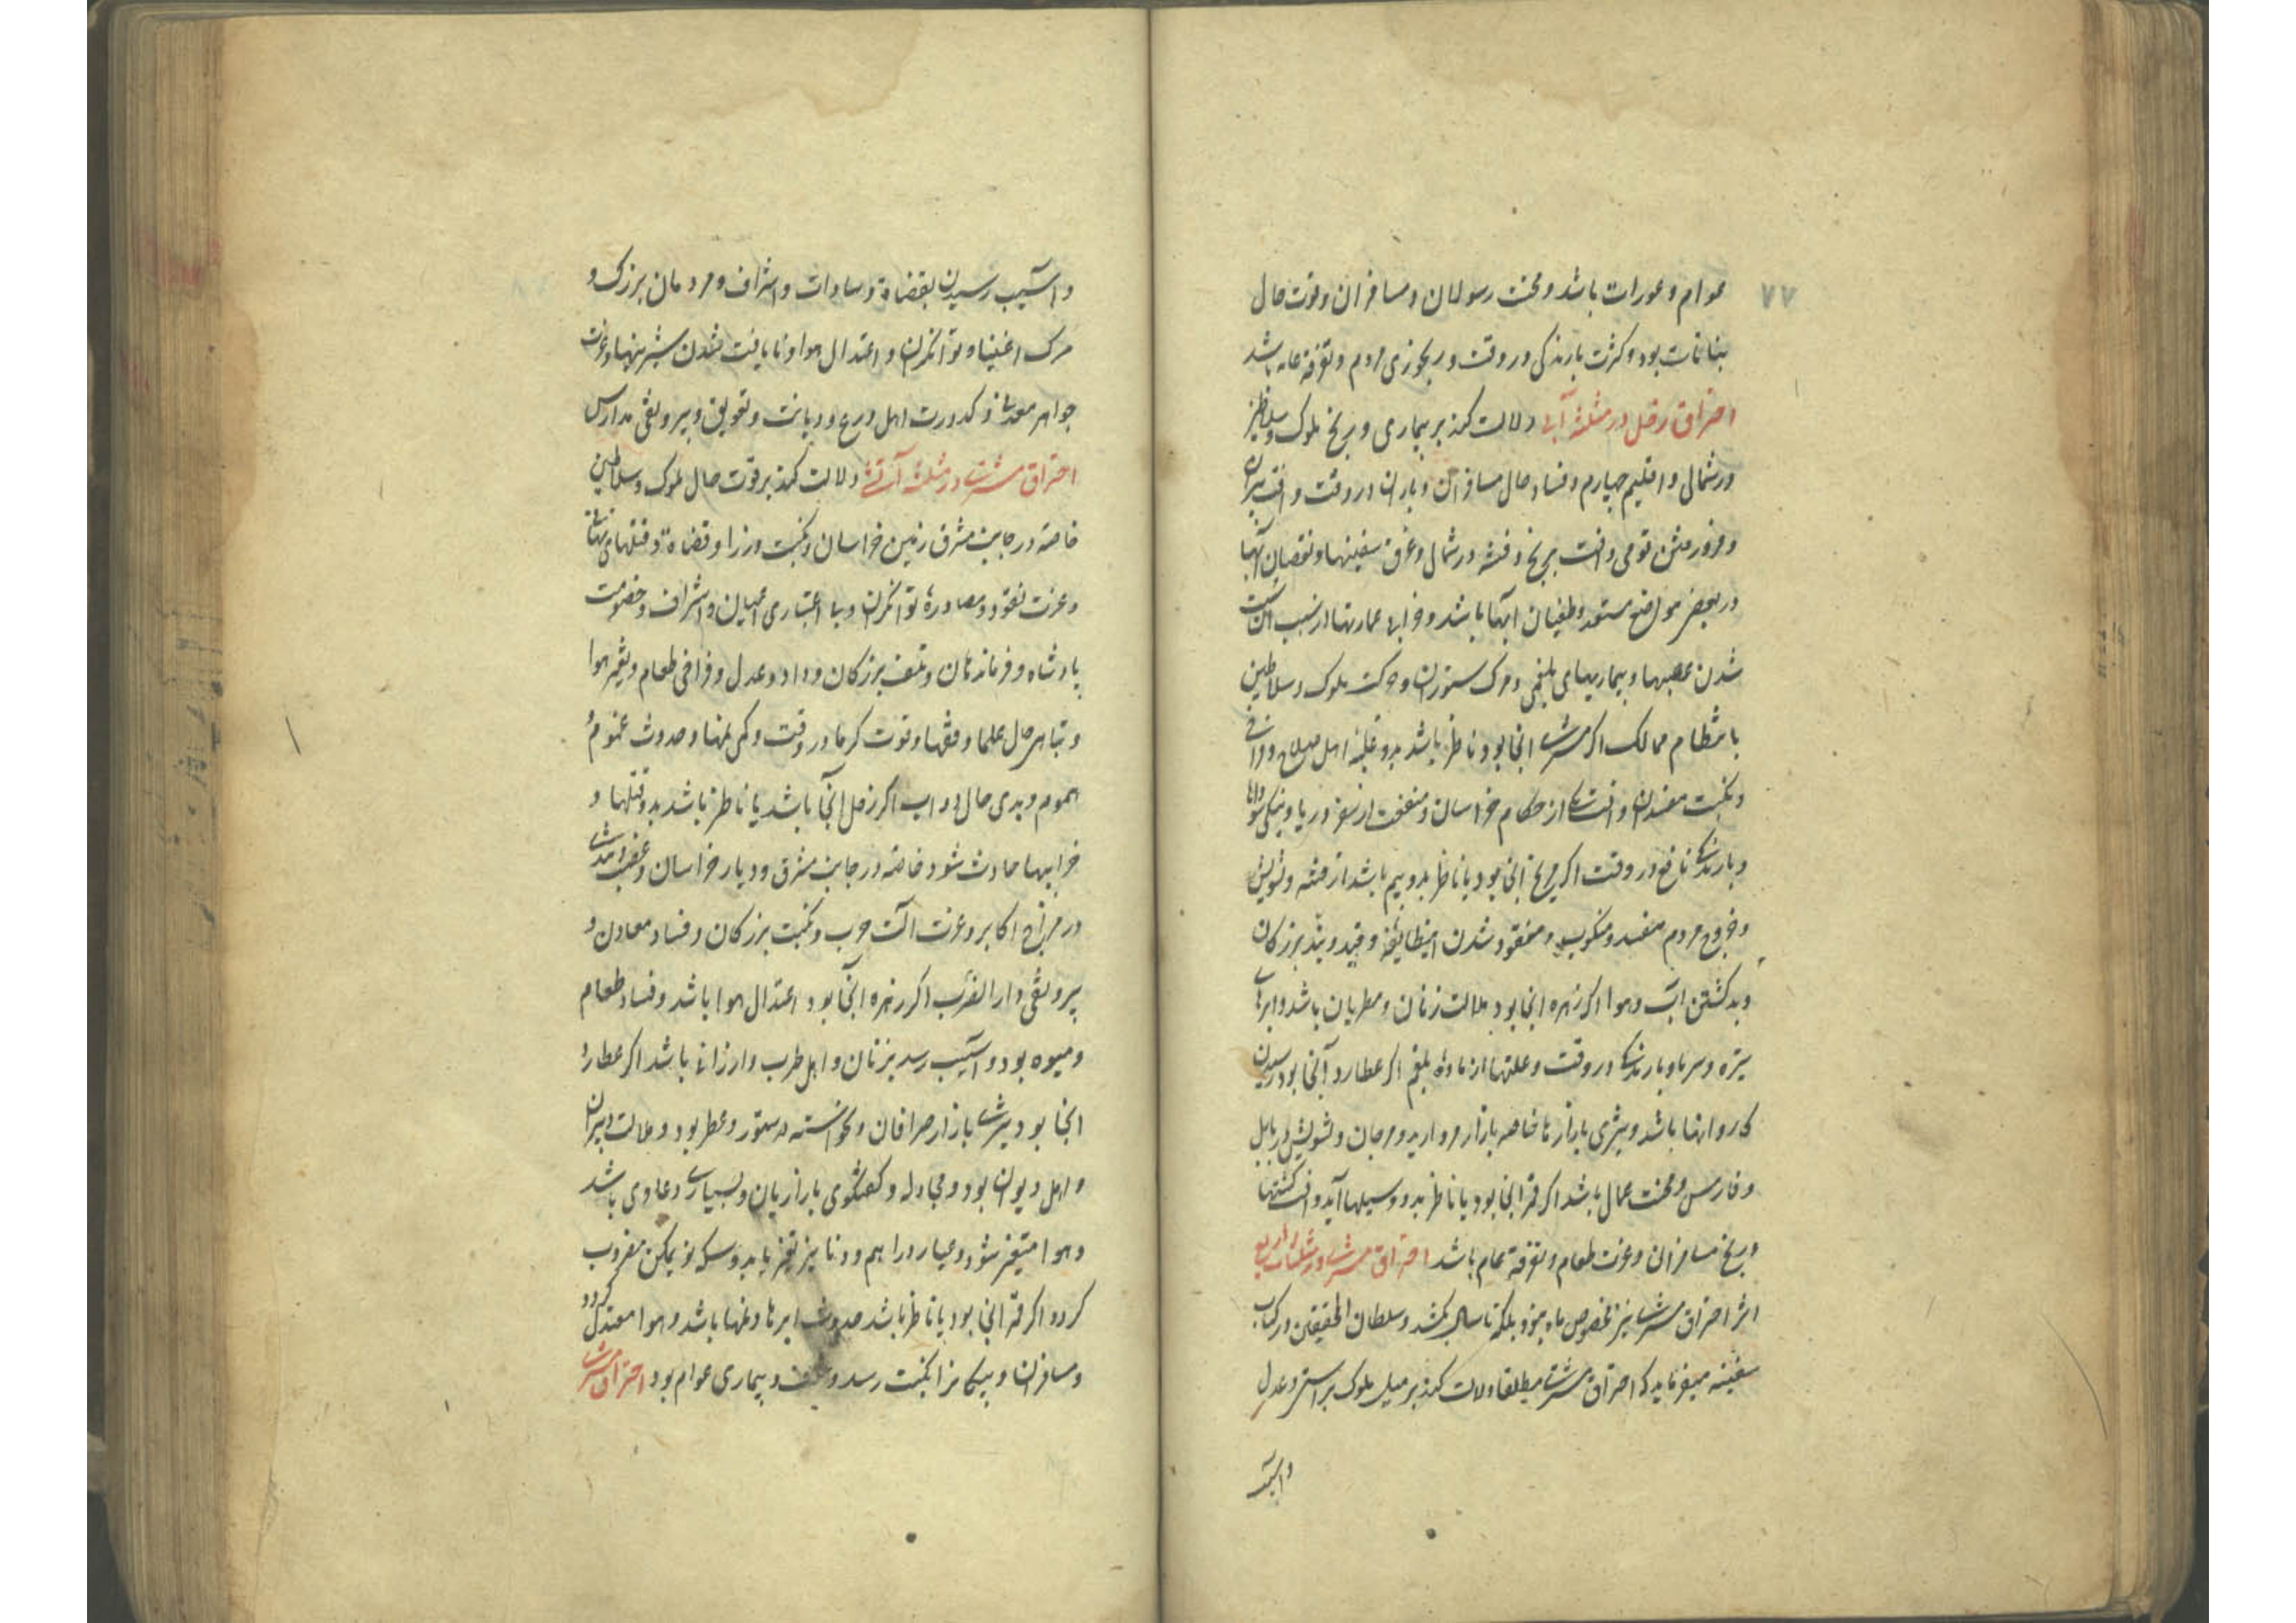 ۷۷
عوام و عورات باشد و محنت رسولان و مسافران و قوت حال
بنا نات بود و کثرت بارندگی در وقت و رنجوری مردم و تفرقه عامه باشد
احتراق زحل در مثلثه آبی دلالت کند بر بیماری و رنج ملوک و سلاطین
در شمال و اقلیم چهارم و فساد حال مسافران و باران در وقت و آفت پیران
و فرو رفتن قومی و آفت بریخ و فتنه در شمال و غرق سفینها و نقصان آبها
در بعضی مواضع مستعد و طغیان آبها باشد و خرابی عمارتها از سبب آن
شدن عصبها و بیماریهای بلغمی و مرک ستوران و حرکت ملوک و سلاطین
بانتظام ممالک اگر مشتری آنجا بود یا ناظر باشد بدو غلبه اهل صلاح
و نکبت مفسدان و از حکام خراسان و منفعت از سفر دریا و نیکی
و بارندگی نافع در وقت اگر مریخ آنجا بود یا ناظر بدو بیم باشد از فتنه و تشویش
و خروج مردم مفسد و منکوب و مفقود شدن این طایفه و قید و بند بزرکان
و بد کشتن آب و هوا اگر زهره آنجا بود ملالت زنان و مطربان باشد و ابرهای
تیره و سرما و بارندگی در وقت و علتها از ماده بلغم اگر عطارد آنجا بود رسیدن
کاروانها باشد و تیزی بازارها خاصه بازار مروارید و مرجان و تشویش در بابل
و فارس و محنت عمال باشد اگر قمر آنجا بود یا ناظر بدو سیلها آید و آفت کشتیها
و رنج مسافران و عزت طعام و تفرقه عام باشد احتراق مشتری در مثلثات اربع
اثر احتراق مشتری نیز مخصوص ماه نبود بلکه تا سالی بکشد و سلطان المحققین در کتاب
سفینه میفرماید که احتراق مشتری مطلقا دلالت کند بر میل ملوک براستی و عدل
و آسیب
و آسیب رسیدن بقضاة و سادات و اشراف و مردمان بزرک و
مرک اغنیا و توانکران و اعتدال هوا و نایافت شدن شیرینیها و عزت
جواهر معدنی و کدورت اهل ورع و دیانت و تعویق و بیرونقی مدارس
احتراق مشتری در مثلثه آتشی دلالت کند بر قوت حال ملوک و سلاطین
خاصه در جانب مشرق زمین خراسان و نکبت وزرا و قضاة و قتلهای پنهانی
و عزت نقود و مصادره توانکران و بی اعتباری اعیان و اشراف و خصومت
پادشاه و فرماندهان و تلف بزرکان و داد و عدل و فراخی طعام و تغیر هوا
و تباهی حال علما و فقها و قوت کرما در وقت و کمی نمها و حدوث غموم و
هموم و بدی حال دواب اگر زحل آنجا باشد یا ناظر باشد بدو قتلها و
خرابیها حادث شود خاصه در جانب مشرق و دیار خراسان و غضب و حدت
در مزاج اکابر و عزت آلت حرب و نکبت بزرکان و فساد معادن و
بیرونقی دار الضرب اگر زهره آنجا بود اعتدال هوا باشد و فساد طعام
و میوه بود و آسیب رسد بزنان و اهل طرب و ارزانی باشد اگر عطارد
آنجا بود تیزی بازار صرافان و خواسته و ستور و عطر بود و ملالت دبیران
و اهل دیوان بود و مجادله و کفتکوی بازاریان و بسیاری دعاوی باشد
و هوا متغیر شود و عیار دراهم و دنانیر تغیر یابد و سکه نو ممکن مضروب
کردد اگر قمر آنجا بود یا ناظر باشد حدوث ابرها و نمها باشد و هوا معتدل کردد
و مسافران و پیکانرا نکبت رسد و ضعف و بیماری عوام بود احتراق مشتری